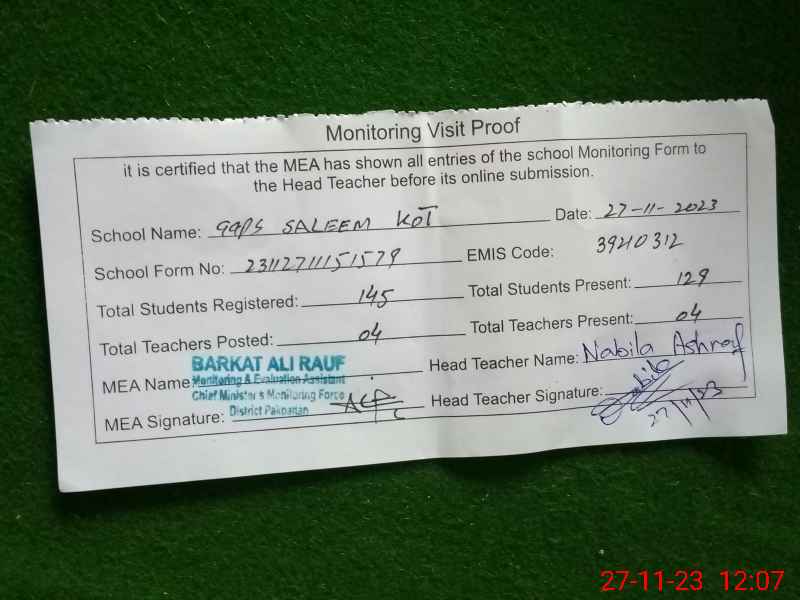 Monitoring Visit Proof
it is certified that the MEA has shown all entries of the school Monitoring Form to
the Head Teacher before its online submission.
School Name: GGPS SALEEM KOT Date: 27-11-2023
School Form No: 23112711151579 EMIS Code: 39210312
Total Students Registered: 145 Total Students Present: 129
Total Teachers Posted: 04 Total Teachers Present: 04
MEA Name: BARKAT ALI RAUF Head Teacher Name: Nabila Ashraf
Monitoring & Evaluation Assistant
Chief Minister's Monitoring Force
District Pakpattan
MEA Signature: Head Teacher Signature: Nabila
27/11/23
27-11-23 12:07